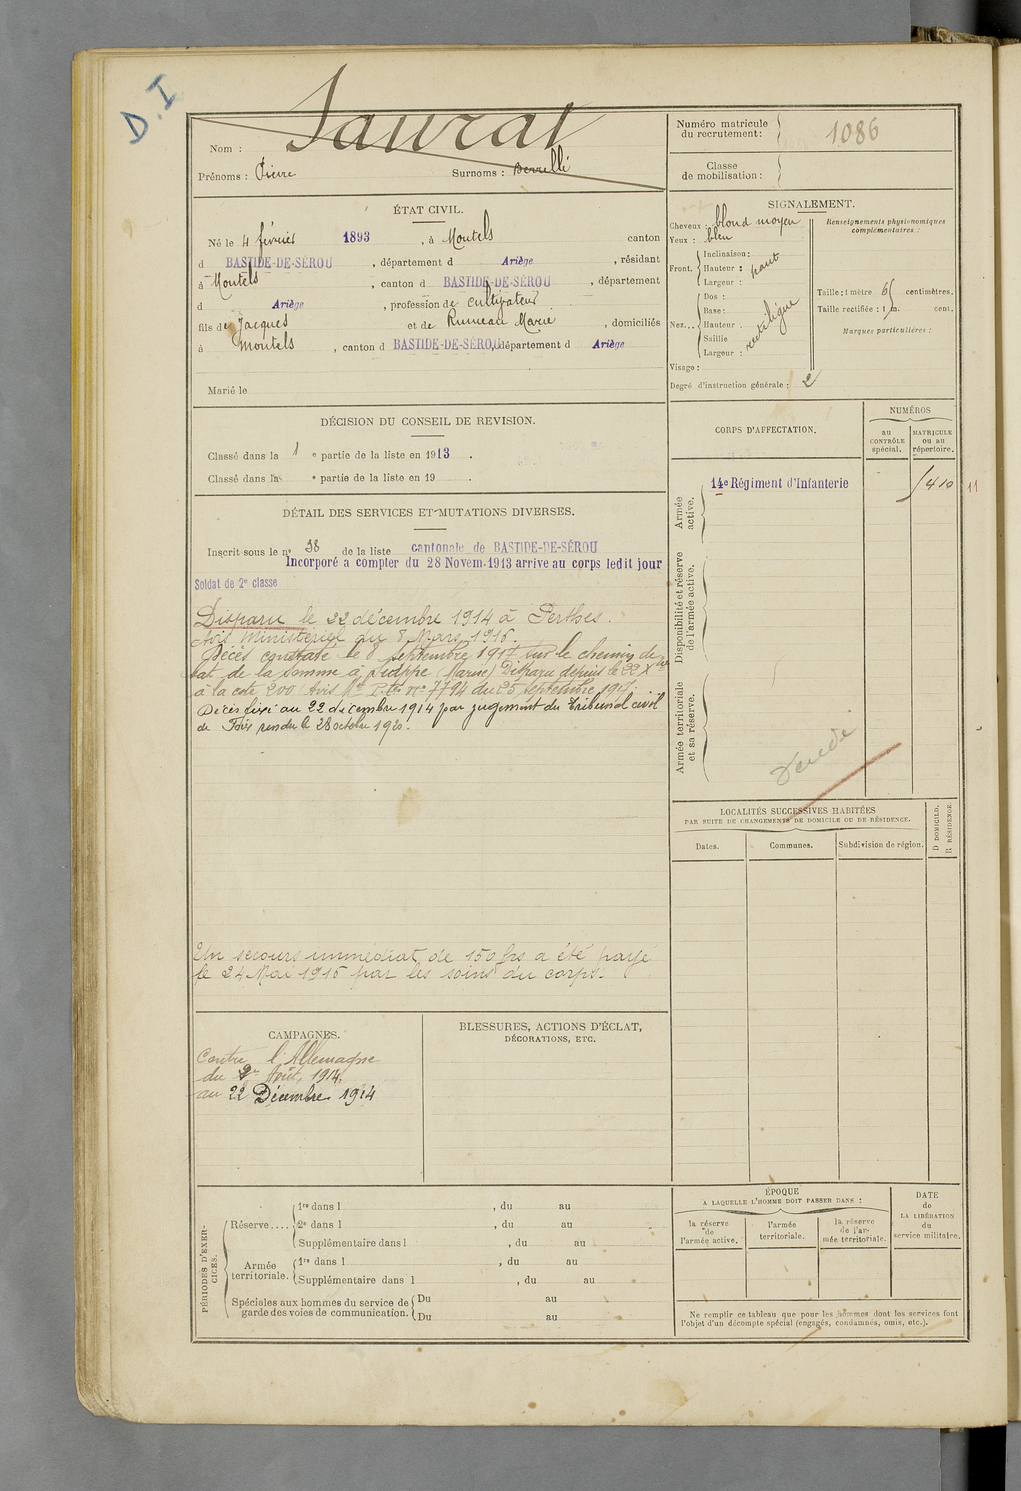 D.I
Nom : Saurat
Prénoms : Pierre Surnoms :
Numéro matricule du recrutement : 1086
Classe de mobilisation :
ÉTAT CIVIL.
Né le 4 février 1893, à Montels canton
d BASTIDE-DE-SÉROU, département d Ariège, résidant
à Montels, canton d BASTIDE-DE-SÉROU, département
d Ariège, profession de cultivateur
fils de Jacques et de Rumeau Marie, domiciliés
à Montels, canton d BASTIDE-DE-SÉROU, département d Ariège
Marié le
SIGNALEMENT.
Cheveux : blond moyen
Yeux : bleu
Front. Inclinaison :
Hauteur : haut
Largeur :
Nez... Dos : rectiligne
Base :
Hauteur .
Saillie
Largeur :
Visage :
Degré d'instruction générale : 2
Renseignements physionomiques complémentaires :
Taille : 1 mètre 65 centimètres.
Taille rectifiée : 1 m. cent.
Marques particulières :
DÉCISION DU CONSEIL DE REVISION.
Classé dans la 1e partie de la liste en 1913.
Classé dans la e partie de la liste en 19 .
DÉTAIL DES SERVICES ET MUTATIONS DIVERSES.
Inscrit sous le no 38 de la liste cantonale de BASTIDE-DE-SÉROU
Incorporé a compter du 28 Novem. 1913 arrive au corps ledit jour
Soldat de 2e classe
Disparu le 22 décembre 1914 à Perthes.
Avis Ministériel du 8 Mars 1916.
Décès constaté le 8 septembre 1917 sur le chemin de
de la Somme à Suippe (Marne) Disparu depuis le 22 Xbre
à la cote 200 Avis no 7794 du 25 septembre 191
Décès fixé au 22 décembre 1914 par jugement du Tribunal civil
de Foix rendu le 28 octobre 1920.
Un secours immédiat de 150 frs a été payé
le 24 Mai 1916 par les soins du corps.
CORPS D'AFFECTATION.
NUMÉROS
au CONTRÔLE spécial.
MATRICULE ou au répertoire.
Armée active.
14e Régiment d'Infanterie
1410
11
Disponibilité et réserve de l'armée active.
Armée territoriale et sa réserve.
LOCALITÉS SUCCESSIVES HABITÉES
PAR SUITE DE CHANGEMENTS DE DOMICILE OU DE RÉSIDENCE.
Dates.
Communes.
Subdivision de région.
D DOMICILE.
R RÉSIDENCE.
CAMPAGNES.
Contre l'Allemagne
du 2 Août 1914
au 22 Décembre 1914
BLESSURES, ACTIONS D'ÉCLAT,
DÉCORATIONS, ETC.
PÉRIODES D'EXERCICES.
Réserve.... 1re dans l , du au
2e dans l , du au
Supplémentaire dans l , du au
Armée territoriale. 1re dans l , du au
Supplémentaire dans l , du au
Spéciales aux hommes du service de garde des voies de communication. Du au
Du au
ÉPOQUE
A LAQUELLE L'HOMME DOIT PASSER DANS :
la réserve de l'armée active.
l'armée territoriale.
la réserve de l'armée territoriale.
DATE
de
LA LIBÉRATION
du
service militaire.
Ne remplir ce tableau que pour les hommes dont les services font
l'objet d'un décompte spécial (engagés, condamnés, omis, etc.).